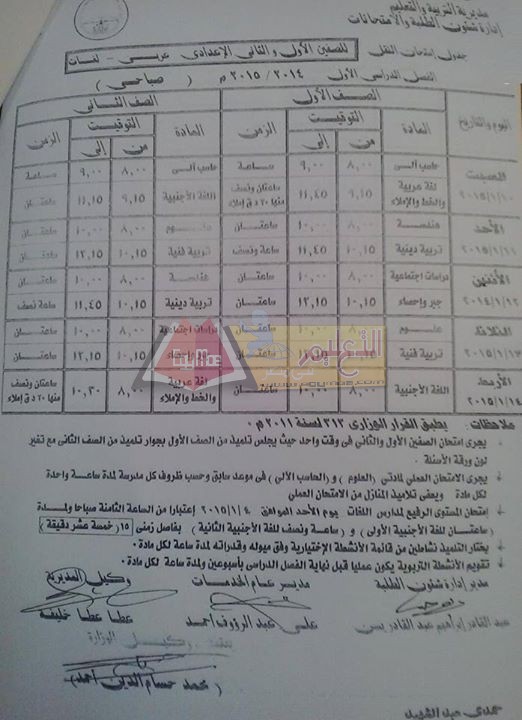 مديرية التربية والتعليم
إدارة شئون الطلبة والامتحانات
جدول امتحان النقل للصفين الأول والثانى الإعدادى عربى - لغات
الفصل الدراسى الأول ٢٠١٤ / ٢٠١٥ م ( صباحى )
اليوم والتاريخ الصف الأول الصف الثانى
المادة التوقيت الزمن المادة التوقيت الزمن
من إلى من إلى
السبت حاسب آلى ٨,٠٠ ٩,٠٠ ساعة حاسب آلى ٨,٠٠ ٩,٠٠ ساعة
٢٠١٥/١/١٠ لغة عربية والخط والإملاء ٩,١٥ ١١,٤٥ ساعتان ونصف منها ٣٠ ق إملاء اللغة الأجنبية ٩,١٥ ١١,١٥ ساعتان
الأحد هندسة ٨,٠٠ ١٠,٠٠ ساعتان علوم ٨,٠٠ ١٠,٠٠ ساعتان
٢٠١٥/١/١١ تربية دينية ١٠,١٥ ١١,٤٥ ساعة ونصف تربية فنية ١٠,١٥ ١٢,١٥ ساعتان
الأثنين دراسات اجتماعية ٨,٠٠ ١٠,٠٠ ساعتان هندسة ٨,٠٠ ١٠,٠٠ ساعتان
٢٠١٤/١/١٢ جبر وإحصاء ١٠,١٥ ١٢,١٥ ساعتان تربية دينية ١٠,١٥ ١١,٤٥ ساعة ونصف
الثلاثاء علوم ٨,٠٠ ١٠,٠٠ ساعتان دراسات اجتماعية ٨,٠٠ ١٠,٠٠ ساعتان
٢٠١٥/١/١٣ تربية فنية ساعتان جبر وإحصاء ١٠,١٥ ١٢,١٥ ساعتان
الأربعاء اللغة الأجنبية ٨,٠٠ ١٠,٠٠ ساعتان لغة عربية والخط والإملاء ٨,٠٠ ١٠,٣٠ ساعتان ونصف منها ٣٠ ق إملاء
٢٠١٥/١/١٤
ملاحظات : يطبق القرار الوزارى ٣١٣ لسنة ٢٠١١ م ٠
يجرى امتحان الصفين الأول والثانى فى وقت واحد حيث يجلس تلميذ من الصف الأول بجوار تلميذ من الصف الثانى مع تغير
لون ورقة الأسئلة ٠
يجرى الامتحان العملى لمادتى ( العلوم ) و ( الحاسب الآلى ) فى موعد سابق وحسب ظروف كل مدرسة لمدة ساعة واحدة
لكل مادة ويعفى تلاميذ المنازل من الامتحان العملى
امتحان المستوى الرفيع لمدارس اللغات يوم الأحد الموافق ٢٠١٥/١/٤ إعتبارا من الساعة الثامنة صباحا ولمدة
( ساعتان للغة الأجنبية الأولى ) و ( ساعة ونصف للغة الأجنبية الثانية ) بفاصل زمنى ( ١٥ خمسة عشر دقيقة )
يختار التلميذ نشاطين من قائمة الأنشطة الإختيارية وفق ميوله وقدراته لمدة ساعة لكل مادة ٠
تقويم الأنشطة التربوية يكون عمليا قبل نهاية الفصل الدراسى بأسبوعين ولمدة ساعة لكل مادة ٠
مدير إدارة شئون الطلبة مدير عام الخدمات وكيل المديرية
عبد القادر إبراهيم عبد القادر يس على عبد الرؤوف أحمد عطا عطا خليفة
وكيل الوزارة
( محمد حسام الدين أحمد )